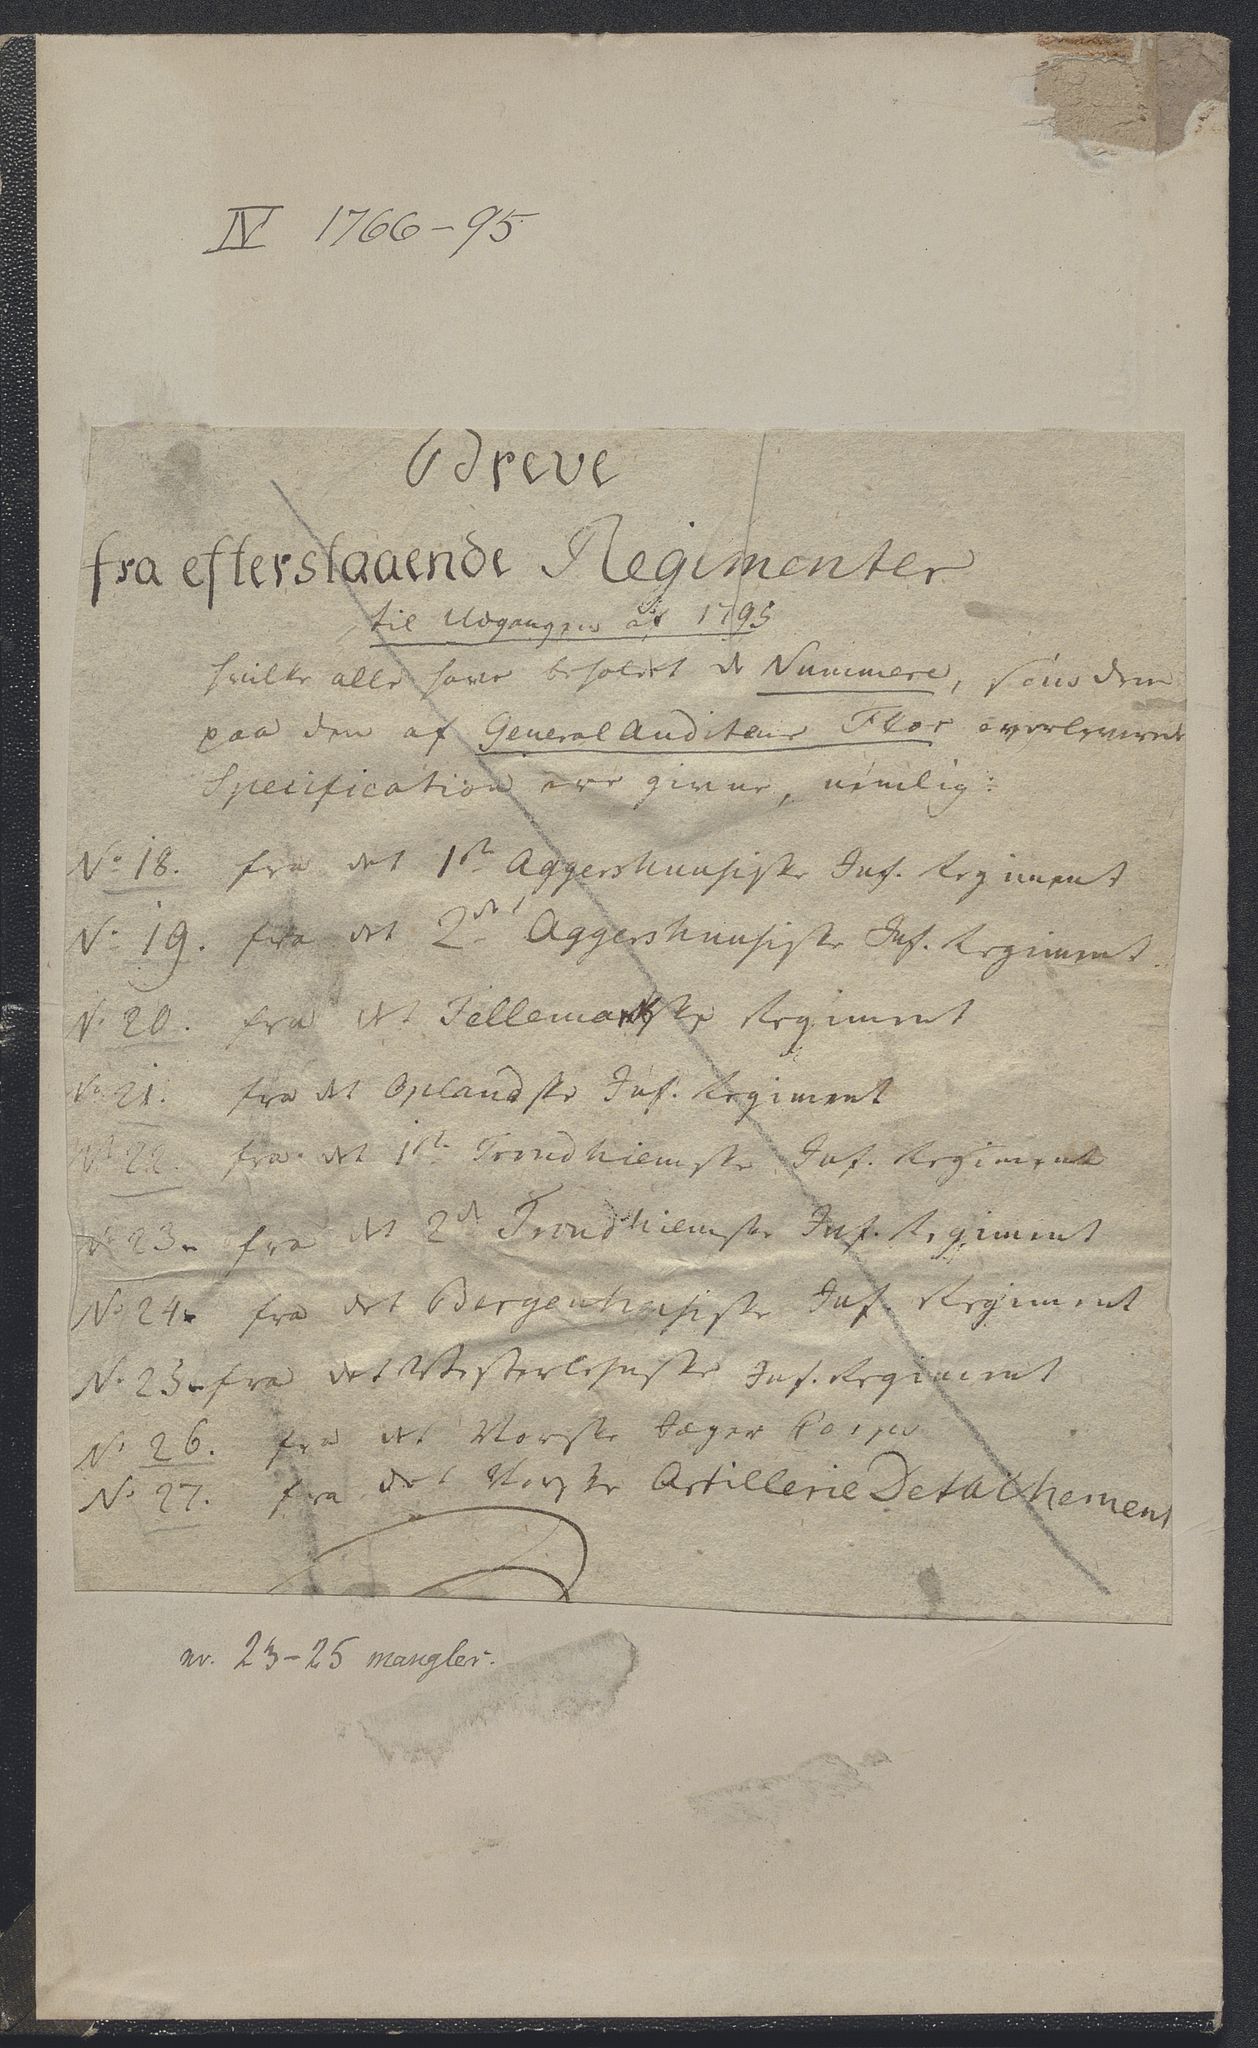 IV 1766-95
Breve
fra efterstaaende Regimenter
til Udgangen af 1795
hvilke alle have beholdt de Nummere, som dem
paa den af General Auditeur Flor overleverede
Specification ere givne, nemlig:
No 18. fra det 1ste Aggershuusiske Inf. Regiment
No 19. fra det 2det Aggershuusiske Inf. Regiment
No 20. fra det Tellemarkske Regiment
No 21. fra det Oplandske Inf. Regiment
No 22. fra det 1ste Trondhiemske Inf. Regiment
No 23. fra det 2de Trondhiemske Inf. Regiment
No 24. fra det Bergenhusiske Inf. Regiment
No 25. fra det Vesterlehnske Inf. Regiment
No 26. fra det Norske Jæger Corps
No 27. fra det Norske Artillerie Detachement
nr. 23-25 mangler.